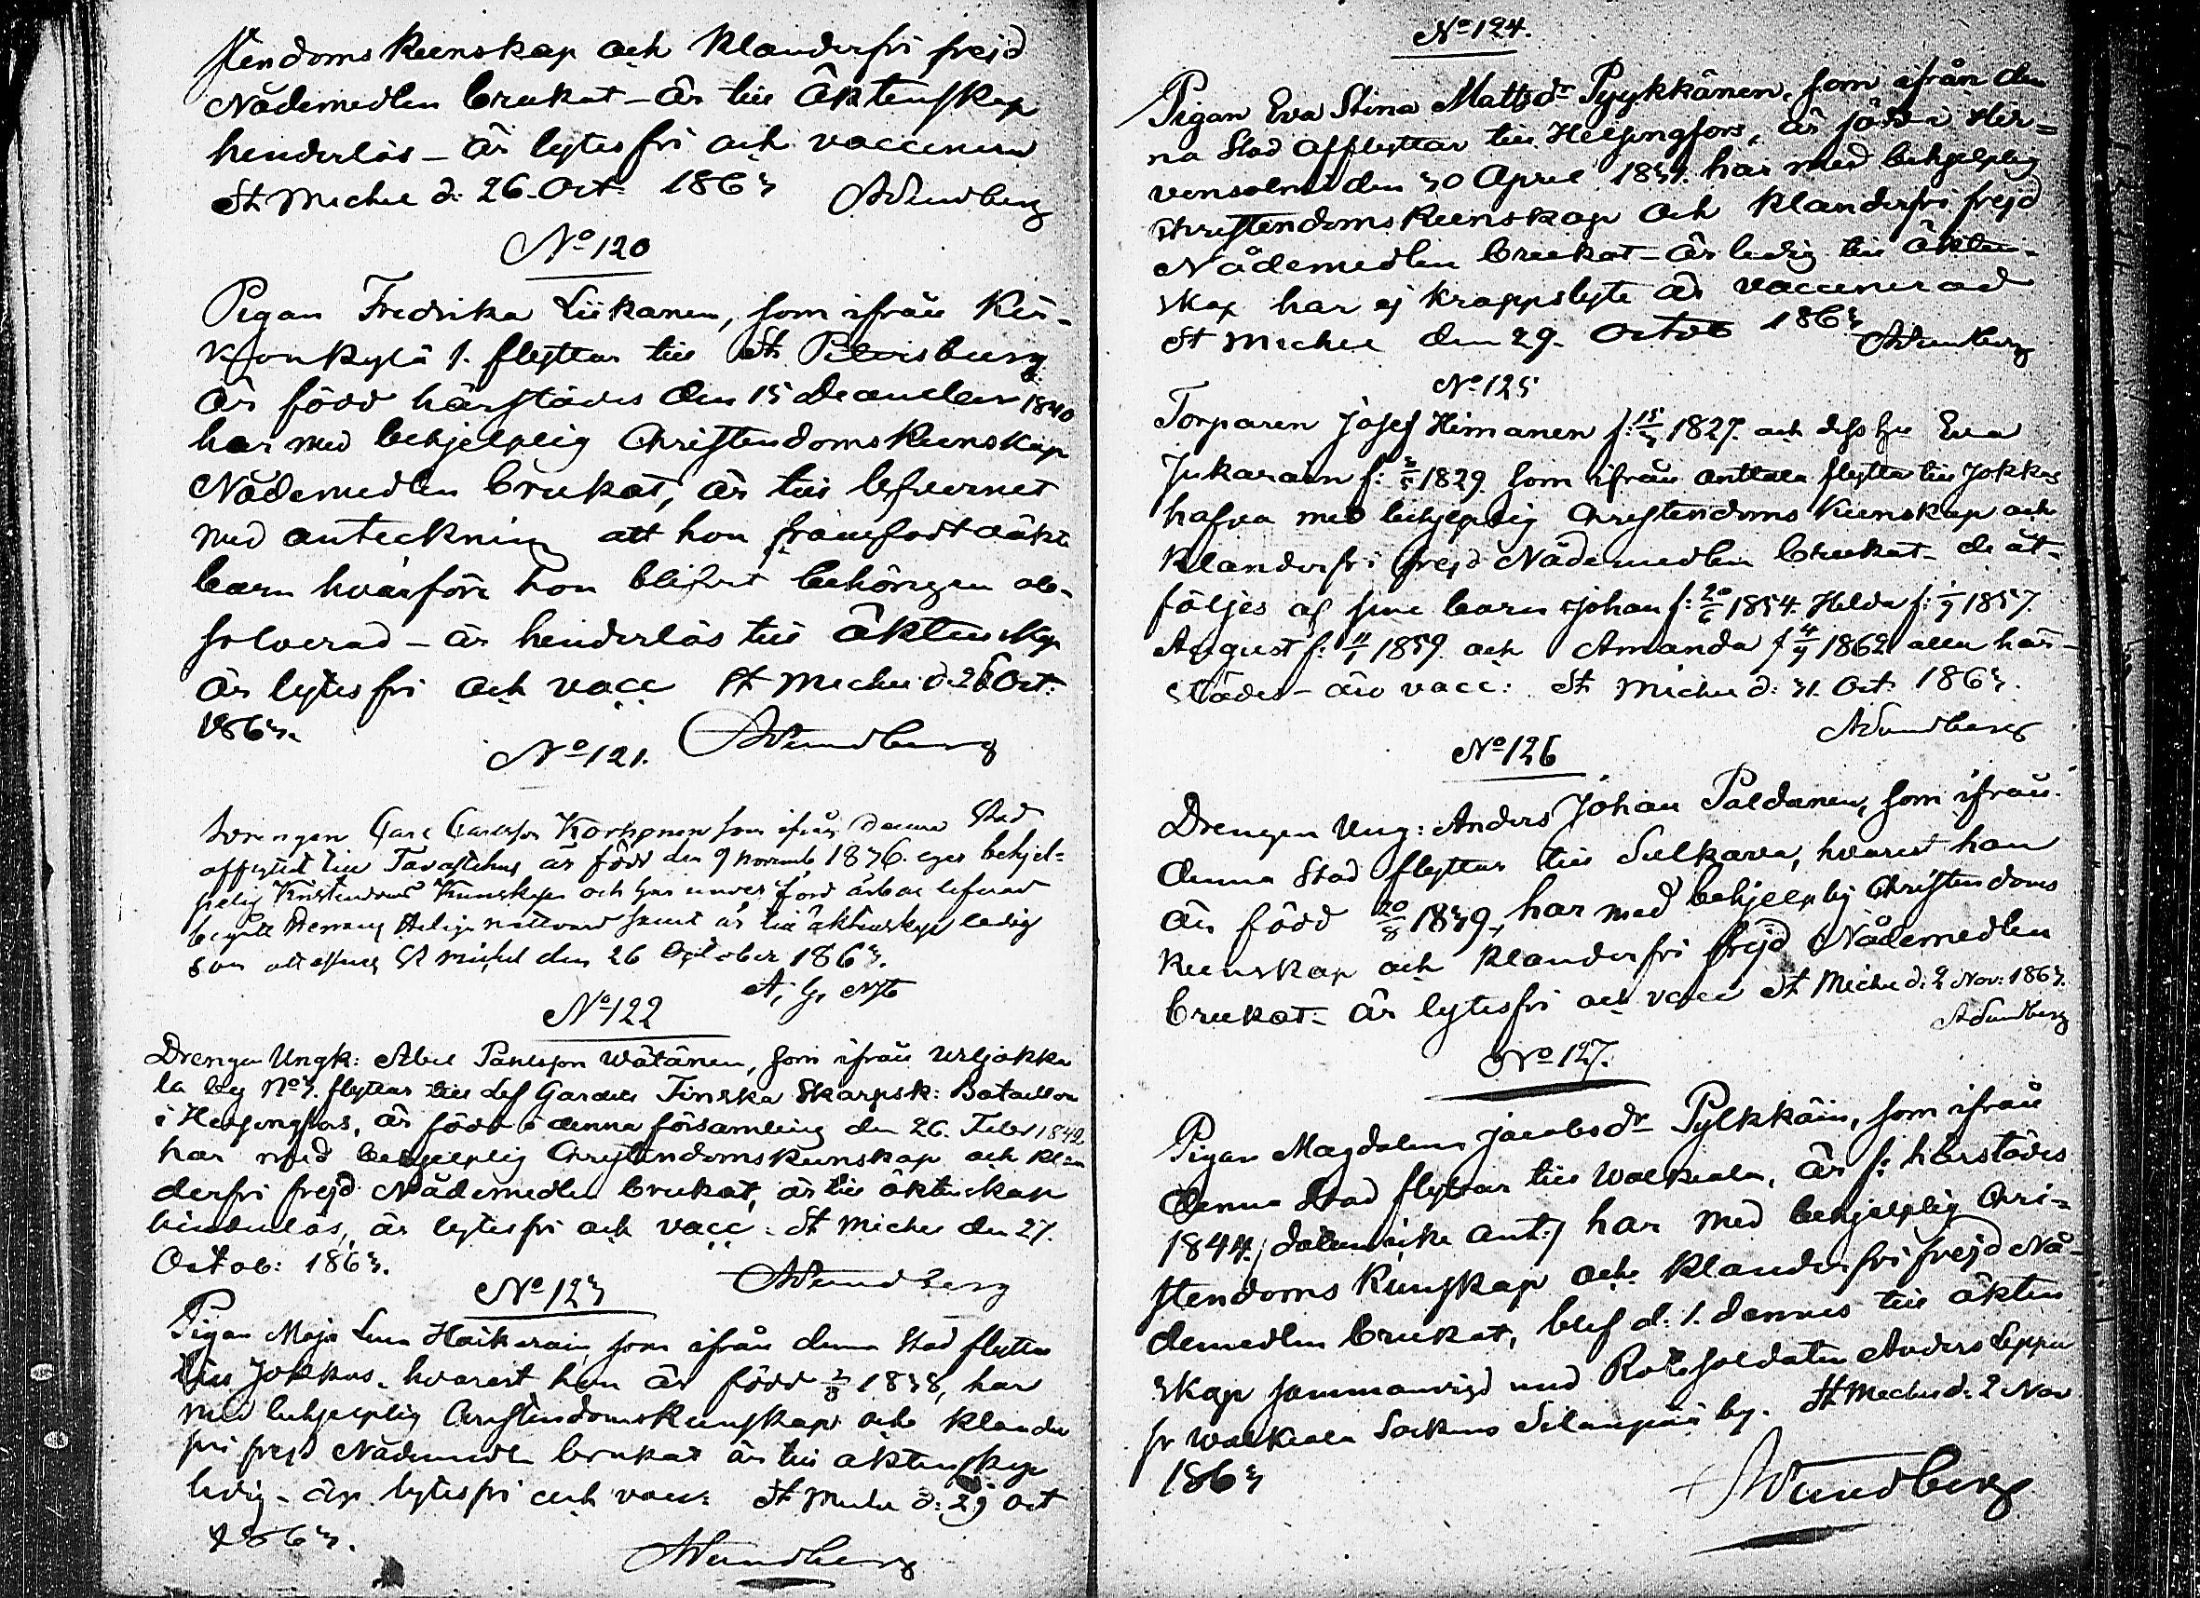 stendoms Kunskap och Klanderfri frejd
Nådemedlen brukat – är till Äktenskap
henderlös – är lytesfri och vaccinera
St Michel d: 26. Oct: 1863 ASundberg
No 120
Pigan Fredrika Liikanen, som ifrån Kir-
konkylä 1. flyttar till St Petersburg
är född härstädes den 15 December 1840
har med behjelplig Christendoms Kunskap
Nådemedlen brukat, är till lefvernet
med anteckning att hon framfödt oäkta
barn hvarföre hon blifvit behörigen ab-
solverad – är henderlös till Äktenskap
är lytesfri och vacc St Michel d 26 Oct:
1863.
ASundberg
No 121.
Drengen Carl Carlsson Korhonen som ifrån denna Stad
afflyttat till Tavastehus är född den 9 Novemb 1836. eger behjel-
pelig Kristendoms Kunskap och har under förd ärbar lefnad
begått Herrans Heliga nattvard samt är till äktenskap ledig
som attesteras St Michel den 26 October 1863.
A. G. Nyb
No 122
Drengen Ungk: Abel Paulsson Wätänen, som ifrån Ursjokka
la by No 3. flyttar till Lif Gardets Finska Skarpsk: Bataillon
i Helsingfors, är född i denna församling den 26. Febr 1842
har med behjelplig Christendomskunskap och klan
derfri frejd Nådemedlen brukat, är till äktenskap
hinderlös, är lytesfri och vacc. St Michel den 27.
Octob: 1863.
ASundberg
No 123
Pigan Maja Lena Häikärain, som ifrån denna Stad flyttar
till Jokkas, hvarest hon är född 2/8 1838, har
med behjelplig Christendomskunskap och klander
fri frejd Nådemedl brukat är till äktenskap
ledig – är lytesfri och vacc: St Michel d: 29 Oct
1863.
ASundberg
No 124.
Pigan Eva Stina Mattsdr Pyykkänen, som ifrån den
na Stad afflyttar till Helsingfors, är född i Hir-
vensalmi den 30 April 1837. har med behjelplig
Christendoms Kunskap och klanderfri frejd
Nådemedlen brukat – är ledig till äkten-
skap har ej kroppslyte är vaccinerad
St Michel den 29. Octob 1863
ASundberg
No 125
Torparen Josef Himanen f: 15/3 1827. och dess hu Eva
Jukarain f: 3/5 1829 som ifrån Anttola flytta till Jokkas
hafva med behjelplig Christendoms Kunskap och
Klanderfri frejd Nådemedlen brukat – de åt-
följes af sine barn Johan f: 20/6 1854. Helda f: 1/9 1857.
August f: 11/1 1859 och Amanda f 4/9 1862 alla här-
städes – äro vacc: St Michel d: 31. Oct: 1863.
ASundberg
No 126
Drengen Ung: Anders Johan Paldanen, som ifrån
denna Stad flyttar till Sulkava, hvarest han
är född 20/8 1839, har med behjelplig Christendoms
Kunskap och klanderfri frejd Nådemedlen
brukat – är lytesfri och vacc St Michel d: 2 Nov: 1863.
ASundberg
No 127.
Pigan Magdalena Jacobsdr Pylkkäin, som ifrån
denna Stad flyttar till Walkeala, är f: härstädes
1844. (datum icke ant:) har med behjelplig Chri-
stendoms Kunskap och klanderfri frejd Nå-
demedlen brukat, blef d: 1. dennes till äkten
skap sammanvigd med Rotesoldaten Anders Leppä
fr Walkeala Sockens Selänpää by. St Michel d: 2 Nov
1863
ASundberg